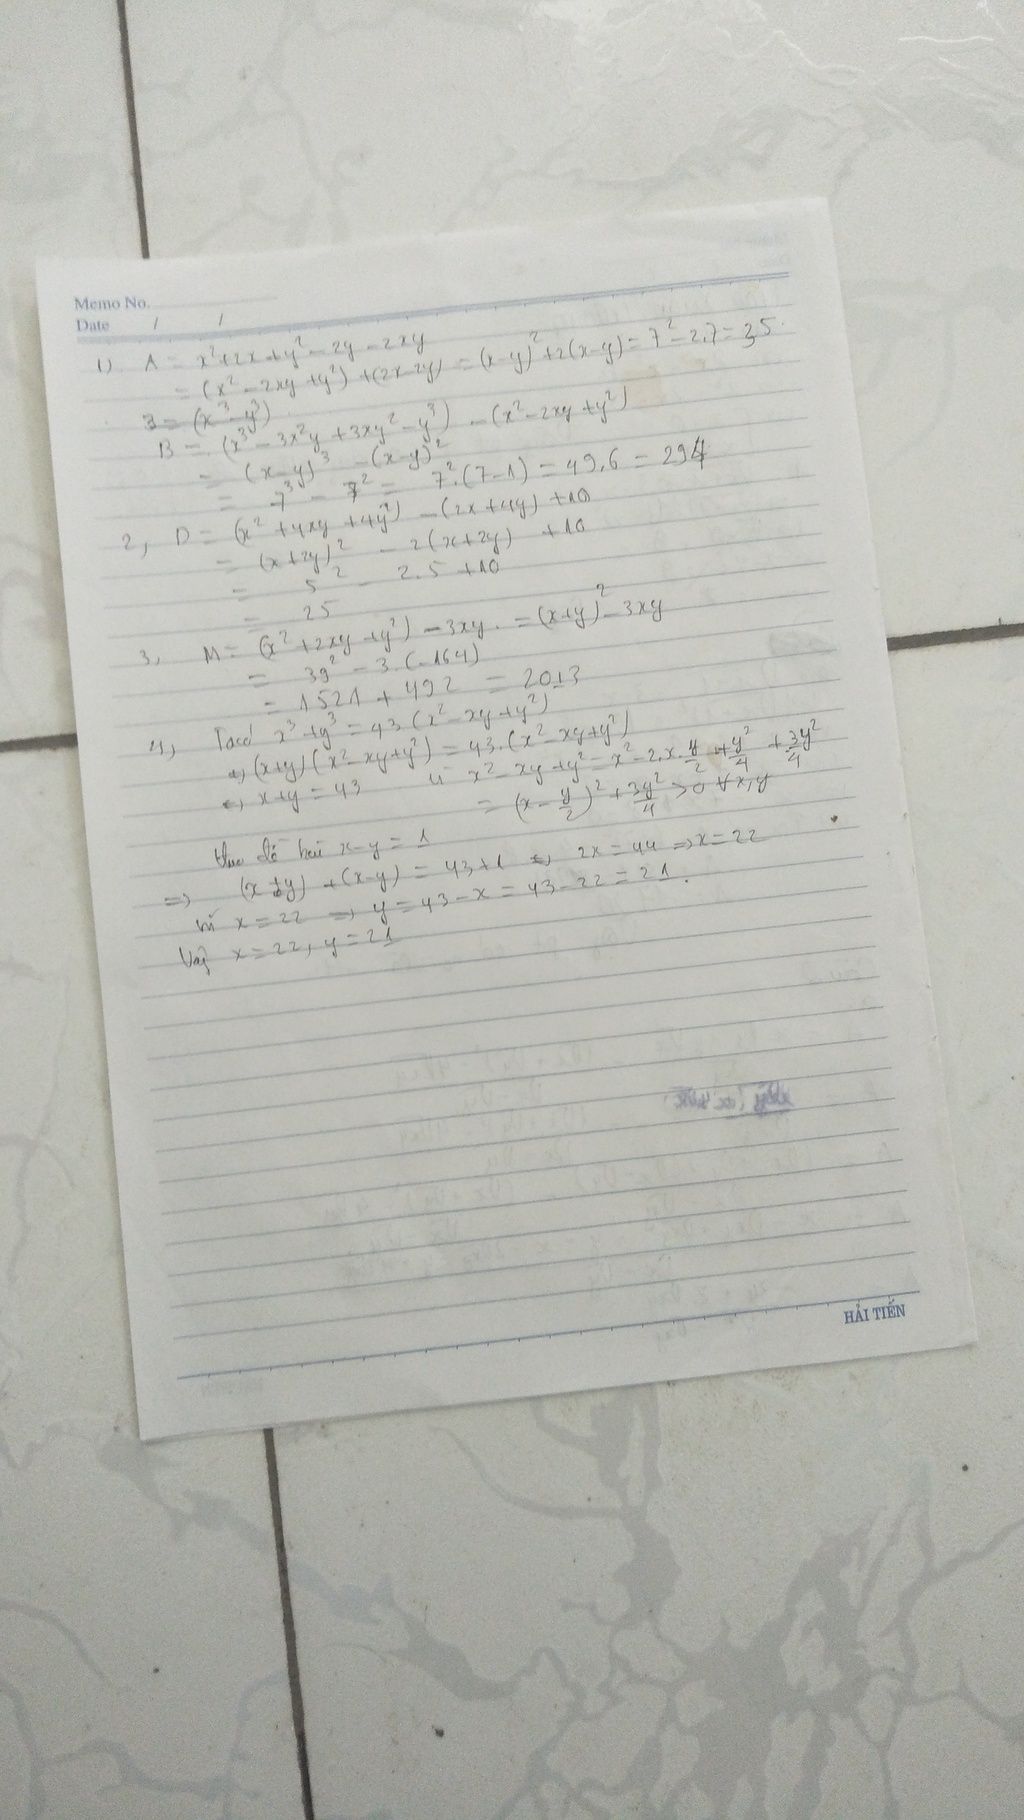 Memo No.
Date / /
1) A = x²+2x+y²-2y-2xy
= (x²-2xy+y²)+(2x-2y) = (x-y)²+2(x-y) = 7²-2.7 = 35.
B = (x³-y³)
B = (x³-3x²y+3xy²-y³) -(x²-2xy+y²)
= (x-y)³ -(x-y)²
= 7³ - 7² = 7².(7-1) = 49.6 = 294
2, D = (x²+4xy+4y²) -(2x+4y)+10
= (x+2y)² - 2(x+2y) +10
= 5² - 2.5 +10
= 25
3, M = (x²+2xy+y²) -3xy. = (x+y)²-3xy
= 39² - 3.(-164)
= 1521 + 492 = 2013
4, Ta có x³+y³ = 43.(x²-xy+y²)
⇔ (x+y)(x²-xy+y²) = 43.(x²-xy+y²)
⇔ x+y = 43 vì x²-xy+y² = x²-2.x.y/2+y²/4+3y²/4
= (x-y/2)²+3y²/4 >0 ∀x,y
theo đề bài x-y = 1
⇒ (x+y)+(x-y) = 43+1 ⇔ 2x = 44 ⇒ x = 22
vì x = 22 ⇒ y = 43-x = 43-22 = 21.
Vậy x = 22, y = 21
HẢI TIẾN